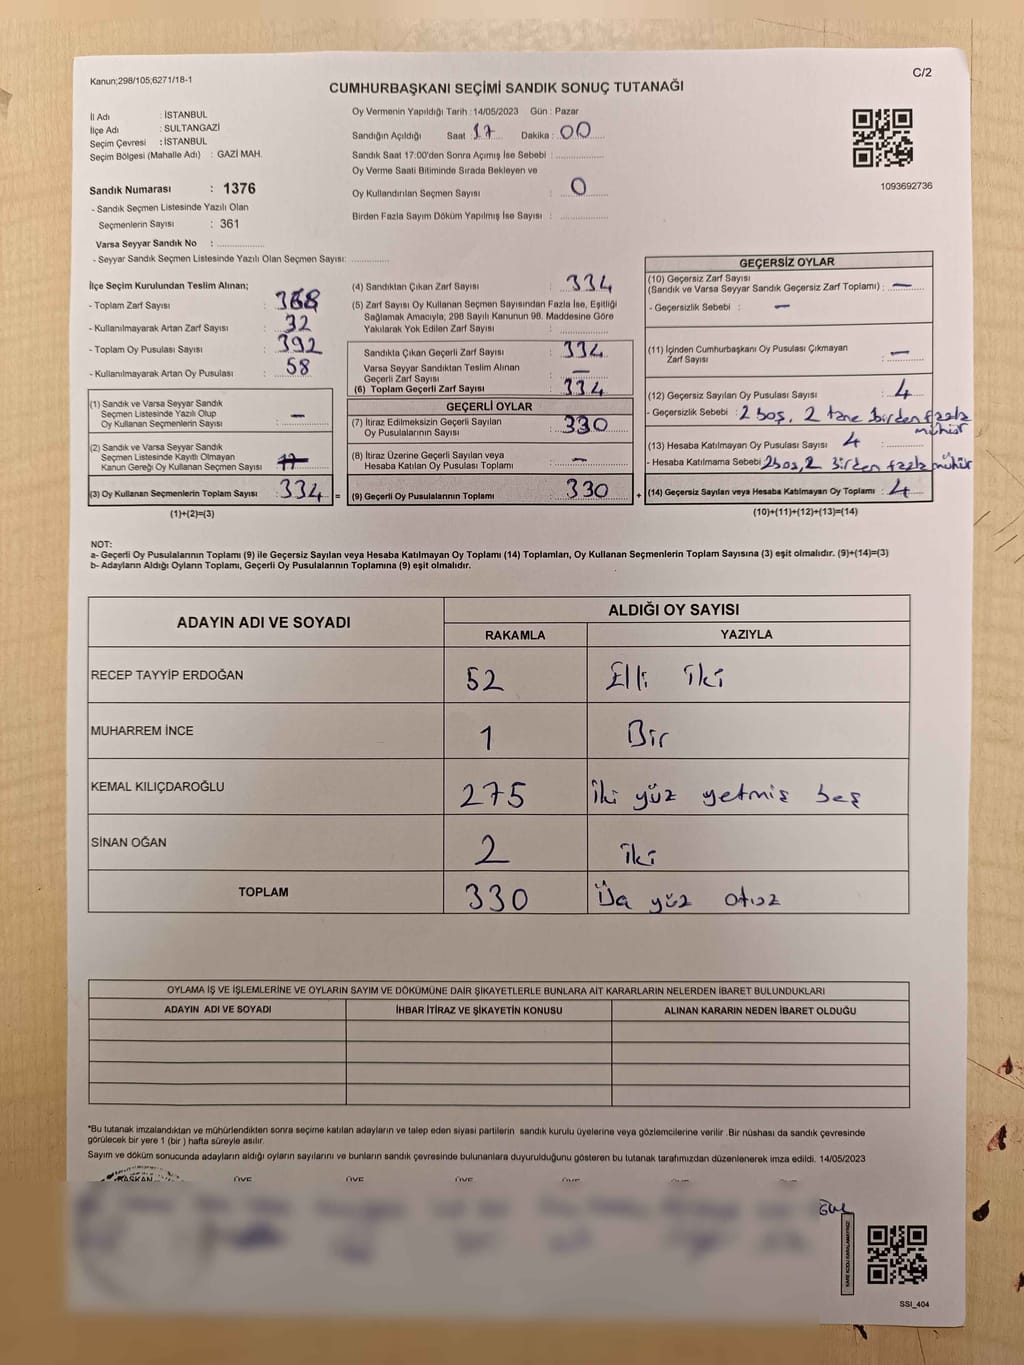 Kanun;298/105;6271/18-1
C/2
CUMHURBAŞKANI SEÇİMİ SANDIK SONUÇ TUTANAĞI
İl Adı : İSTANBUL
İlçe Adı : SULTANGAZİ
Seçim Çevresi : İSTANBUL
Seçim Bölgesi (Mahalle Adı) : GAZİ MAH.
Sandık Numarası : 1376
- Sandık Seçmen Listesinde Yazılı Olan
Seçmenlerin Sayısı : 361
Varsa Seyyar Sandık No :
- Seyyar Sandık Seçmen Listesinde Yazılı Olan Seçmen Sayısı:
Oy Vermenin Yapıldığı Tarih : 14/05/2023 Gün : Pazar
Sandığın Açıldığı Saat : 17 Dakika : 00
Sandık Saat 17:00'den Sonra Açımış İse Sebebi :
Oy Verme Saati Bitiminde Sırada Bekleyen ve
Oy Kullandırılan Seçmen Sayısı : 0
Birden Fazla Sayım Döküm Yapılmış İse Sayısı :
1093692736
İlçe Seçim Kurulundan Teslim Alınan;
- Toplam Zarf Sayısı :
- Kullanılmayarak Artan Zarf Sayısı : 32
- Toplam Oy Pusulası Sayısı : 392
- Kullanılmayarak Artan Oy Pusulası : 58
(1) Sandık ve Varsa Seyyar Sandık
Seçmen Listesinde Yazılı Olup
Oy Kullanan Seçmenlerin Sayısı : —
(2) Sandık ve Varsa Seyyar Sandık
Seçmen Listesinde Kayıtlı Olmayan
Kanun Gereği Oy Kullanan Seçmen Sayısı :
(3) Oy Kullanan Seçmenlerin Toplam Sayısı : 334 =
(1)+(2)=(3)
(4) Sandıktan Çıkan Zarf Sayısı : 334
(5) Zarf Sayısı Oy Kullanan Seçmen Sayısından Fazla İse, Eşitliği
Sağlamak Amacıyla; 298 Sayılı Kanunun 98. Maddesine Göre
Yakılarak Yok Edilen Zarf Sayısı :
Sandıkta Çıkan Geçerli Zarf Sayısı : 334
Varsa Seyyar Sandıktan Teslim Alınan
Geçerli Zarf Sayısı : —
(6) Toplam Geçerli Zarf Sayısı : 334
GEÇERLİ OYLAR
(7) İtiraz Edilmeksizin Geçerli Sayılan
Oy Pusulalarının Sayısı : 330
(8) İtiraz Üzerine Geçerli Sayılan veya
Hesaba Katılan Oy Pusulası Toplamı : —
(9) Geçerli Oy Pusulalarının Toplamı : 330 +
GEÇERSİZ OYLAR
(10) Geçersiz Zarf Sayısı
(Sandık ve Varsa Seyyar Sandık Geçersiz Zarf Toplamı) : —
- Geçersizlik Sebebi : —
(11) İçinden Cumhurbaşkanı Oy Pusulası Çıkmayan
Zarf Sayısı : —
(12) Geçersiz Sayılan Oy Pusulası Sayısı : 4
- Geçersizlik Sebebi : 2 boş, 2 tane birden fazla
mühür
(13) Hesaba Katılmayan Oy Pusulası Sayısı : 4
- Hesaba Katılmama Sebebi : 2 boş, 2 birden fazla mühür
(14) Geçersiz Sayılan veya Hesaba Katılmayan Oy Toplamı : 4
(10)+(11)+(12)+(13)=(14)
NOT:
a- Geçerli Oy Pusulalarının Toplamı (9) ile Geçersiz Sayılan veya Hesaba Katılmayan Oy Toplamı (14) Toplamları, Oy Kullanan Seçmenlerin Toplam Sayısına (3) eşit olmalıdır. (9)+(14)=(3)
b- Adayların Aldığı Oyların Toplamı, Geçerli Oy Pusulalarının Toplamına (9) eşit olmalıdır.
ADAYIN ADI VE SOYADI
ALDIĞI OY SAYISI
RAKAMLA YAZIYLA
RECEP TAYYİP ERDOĞAN 52 Elli iki
MUHARREM İNCE 1 Bir
KEMAL KILIÇDAROĞLU 275 İki yüz yetmiş beş
SİNAN OĞAN 2 iki
TOPLAM 330 Üç yüz otuz
OYLAMA İŞ VE İŞLEMLERİNE VE OYLARIN SAYIM VE DÖKÜMÜNE DAİR ŞİKAYETLERLE BUNLARA AİT KARARLARIN NELERDEN İBARET BULUNDUKLARI
ADAYIN ADI VE SOYADI İHBAR İTİRAZ VE ŞİKAYETİN KONUSU ALINAN KARARIN NEDEN İBARET OLDUĞU
*Bu tutanak imzalandıktan ve mühürlendikten sonra seçime katılan adayların ve talep eden siyasi partilerin sandık kurulu üyelerine veya gözlemcilerine verilir .Bir nüshası da sandık çevresinde
görülecek bir yere 1 (bir ) hafta süreyle asılır.
Sayım ve döküm sonucunda adayların aldığı oyların sayılarını ve bunların sandık çevresinde bulunanlara duyurulduğunu gösteren bu tutanak tarafımızdan düzenlenerek imza edildi. 14/05/2023
BAŞKAN ÜYE ÜYE ÜYE ÜYE
SSI_404